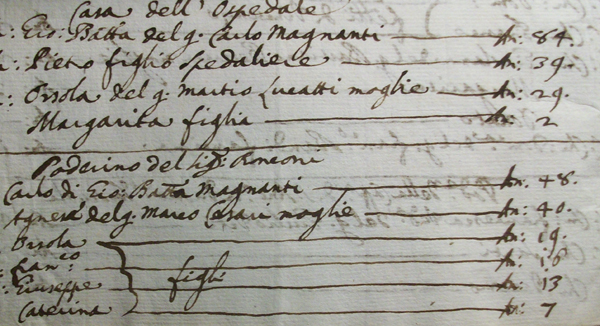 Casa dell' Ospedale
: Gio: Batta del q. Carlo Magnanti An: 84.
: Pietro figlio Spedaliere An: 39.
: Orsola del q. Mattio Lucatti moglie An: 29.
Margarita figlia An: 2
Poderino del Sig.
Carlo di Gio: Batta Magnanti An: 48.
del q. Marco moglie An: 40.
Orsola An: 19.
Fran.co An: 16
: Giuseppe figli An: 13
Caterina An: 7